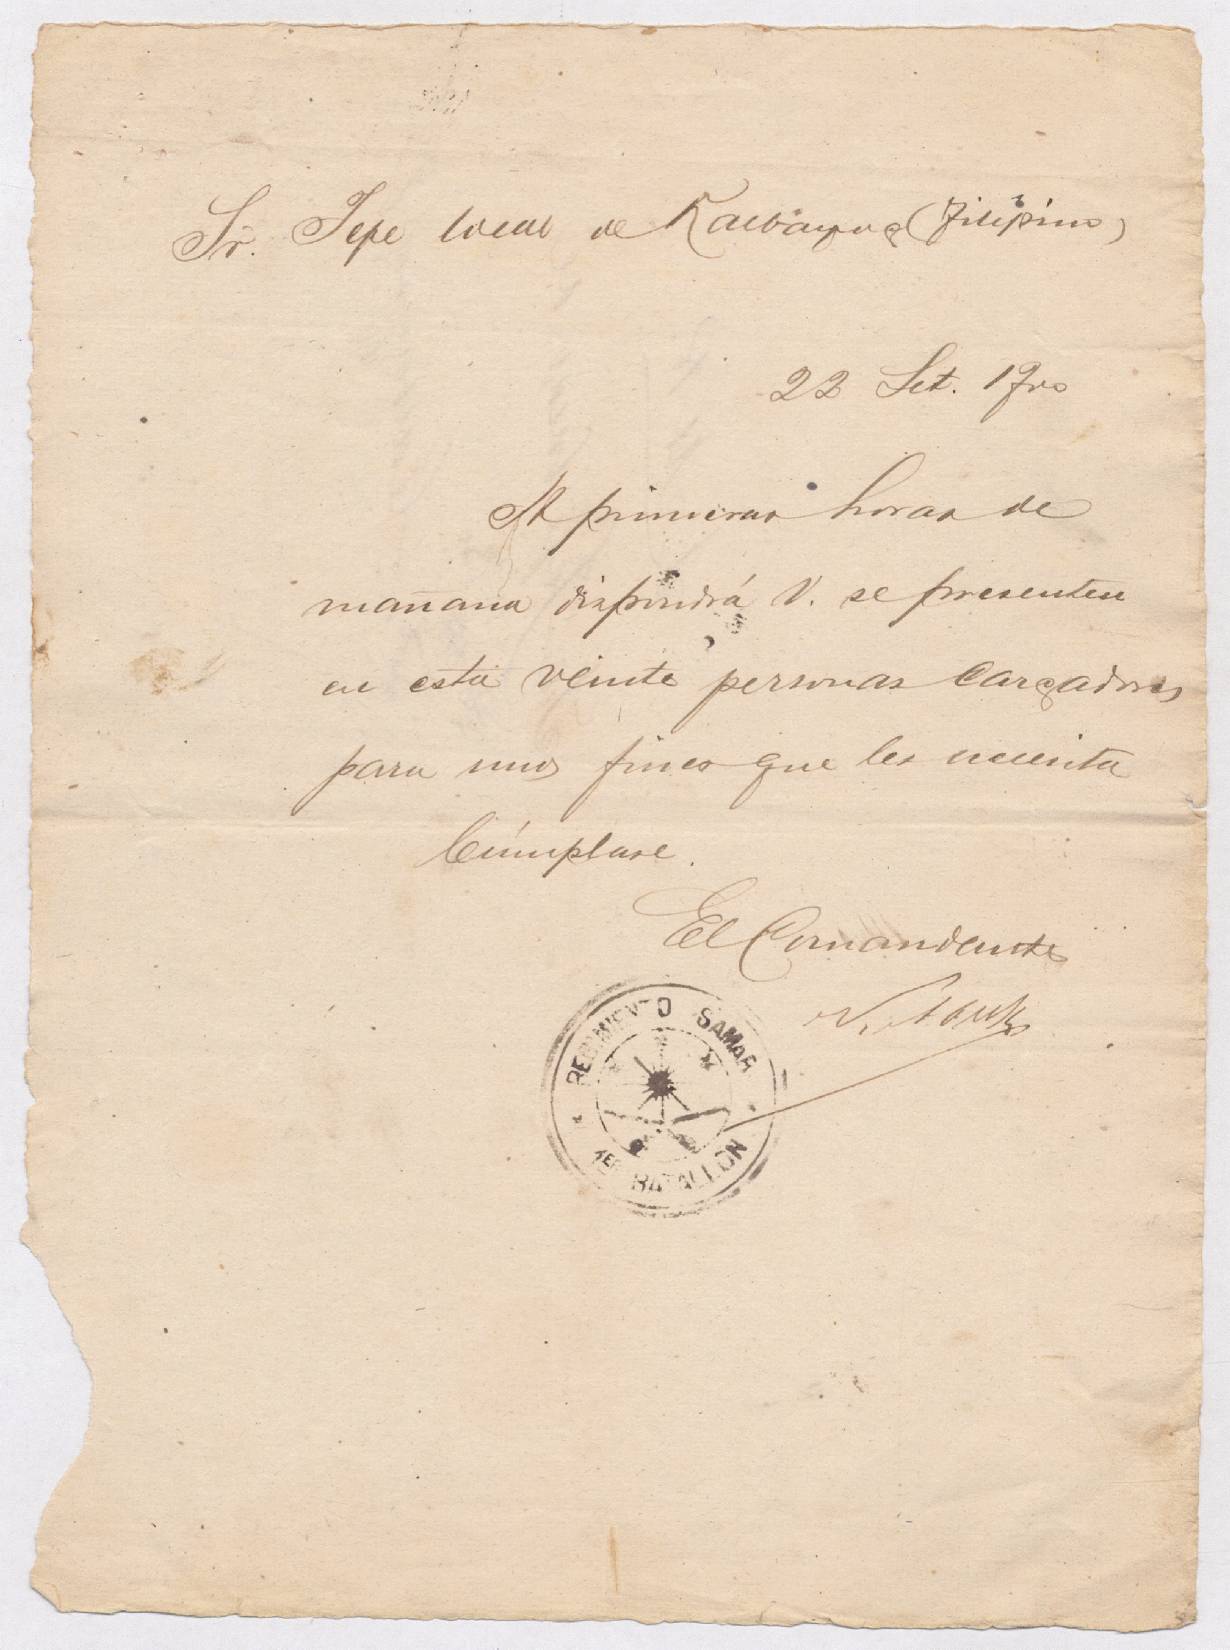 Sr. Jefe local de Kalbayog (Filipino)
22 Set. 1900
A primeras horas de
mañana dispondrá V. se presenten
en esta veinte personas cargadores
para unos fines que les necesita
Cúmplase.
El Comandante
N.
REGIMIENTO SAMAR
1ER BATALLÓN